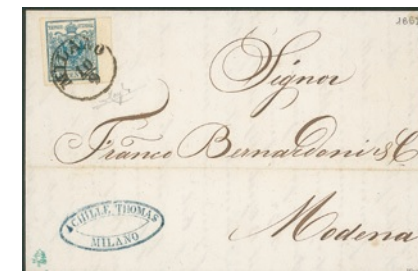 MILANO
Signor
Franco Bernardoni & C
Modena
ACHILLE THOMAS
MILANO